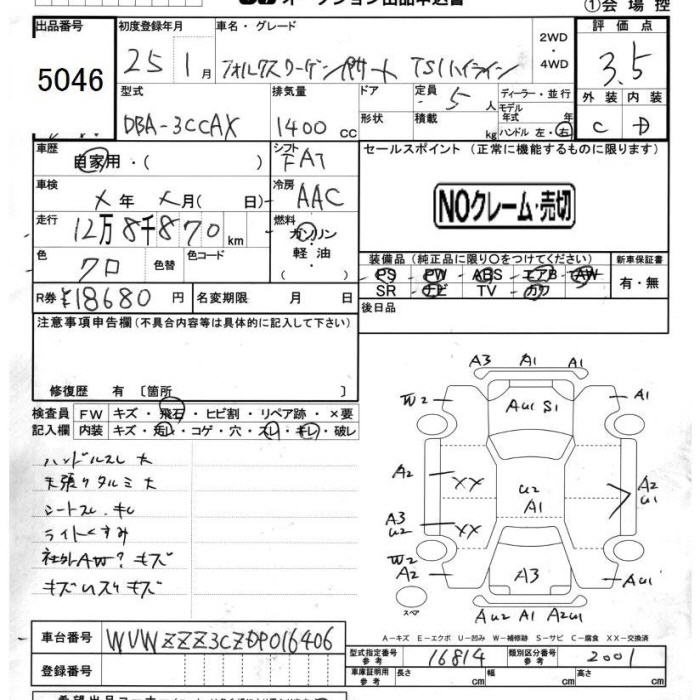 オークション出品申込書
①会場控
出品番号
5046
初度登録年月
25 1月
車名・グレード
フォルクスワーゲン パサート TSIハイライン
2WD
・
4WD
評価点
3.5
外装 内装
C D
型式
DBA-3CCAX
排気量
1400 cc
ドア
形状
定員 5人
積載 kg
ディーラー・並行
モデル年式 年
ハンドル 左・右
車歴
自家用・( )
シフト
FAT
セールスポイント (正常に機能するものに限ります)
車検
メ年 メ月(日)
冷房
AAC
NOクレーム・売切
走行
12万8千870km
燃料
ガソリン
・
軽油
・( )
色
クロ
色替
色コード
装備品 (純正品に限り〇をつけてください)
新車保証書
PS PW ABS エアB AW
SR ナビ TV カワ
有・無
R券 ¥18680円
名変期限 月 日
後日品
注意事項申告欄(不具合内容等は具体的に記入して下さい)
修復歴 有 〔箇所 〕
検査員 FW キズ・飛石・ヒビ割・リペア跡・×要
記入欄 内装 キズ・汚レ・コゲ・穴・スレ・キレ・破レ
ハンドルスレ 大
天張りタルミ 大
シートスレ キレ
ライトくすみ
社外AW? キズ
A3 A1
W2 AU1 S1 A1
A2 XX
U2
A1
A2
U1
A3
U2 XX
W2
A2 A3 AU1
スペア
AU2 A1 A2U1
A-キズ E-エクボ U-凹み W-補修跡 S-サビ C-腐食 XX-交換済
車台番号 WVWZZZ3CZDP016406
型式指定番号 参考 16814
類別区分番号 参考 2001
登録番号
車庫証明用 参考 長さ cm 幅 cm 高さ cm